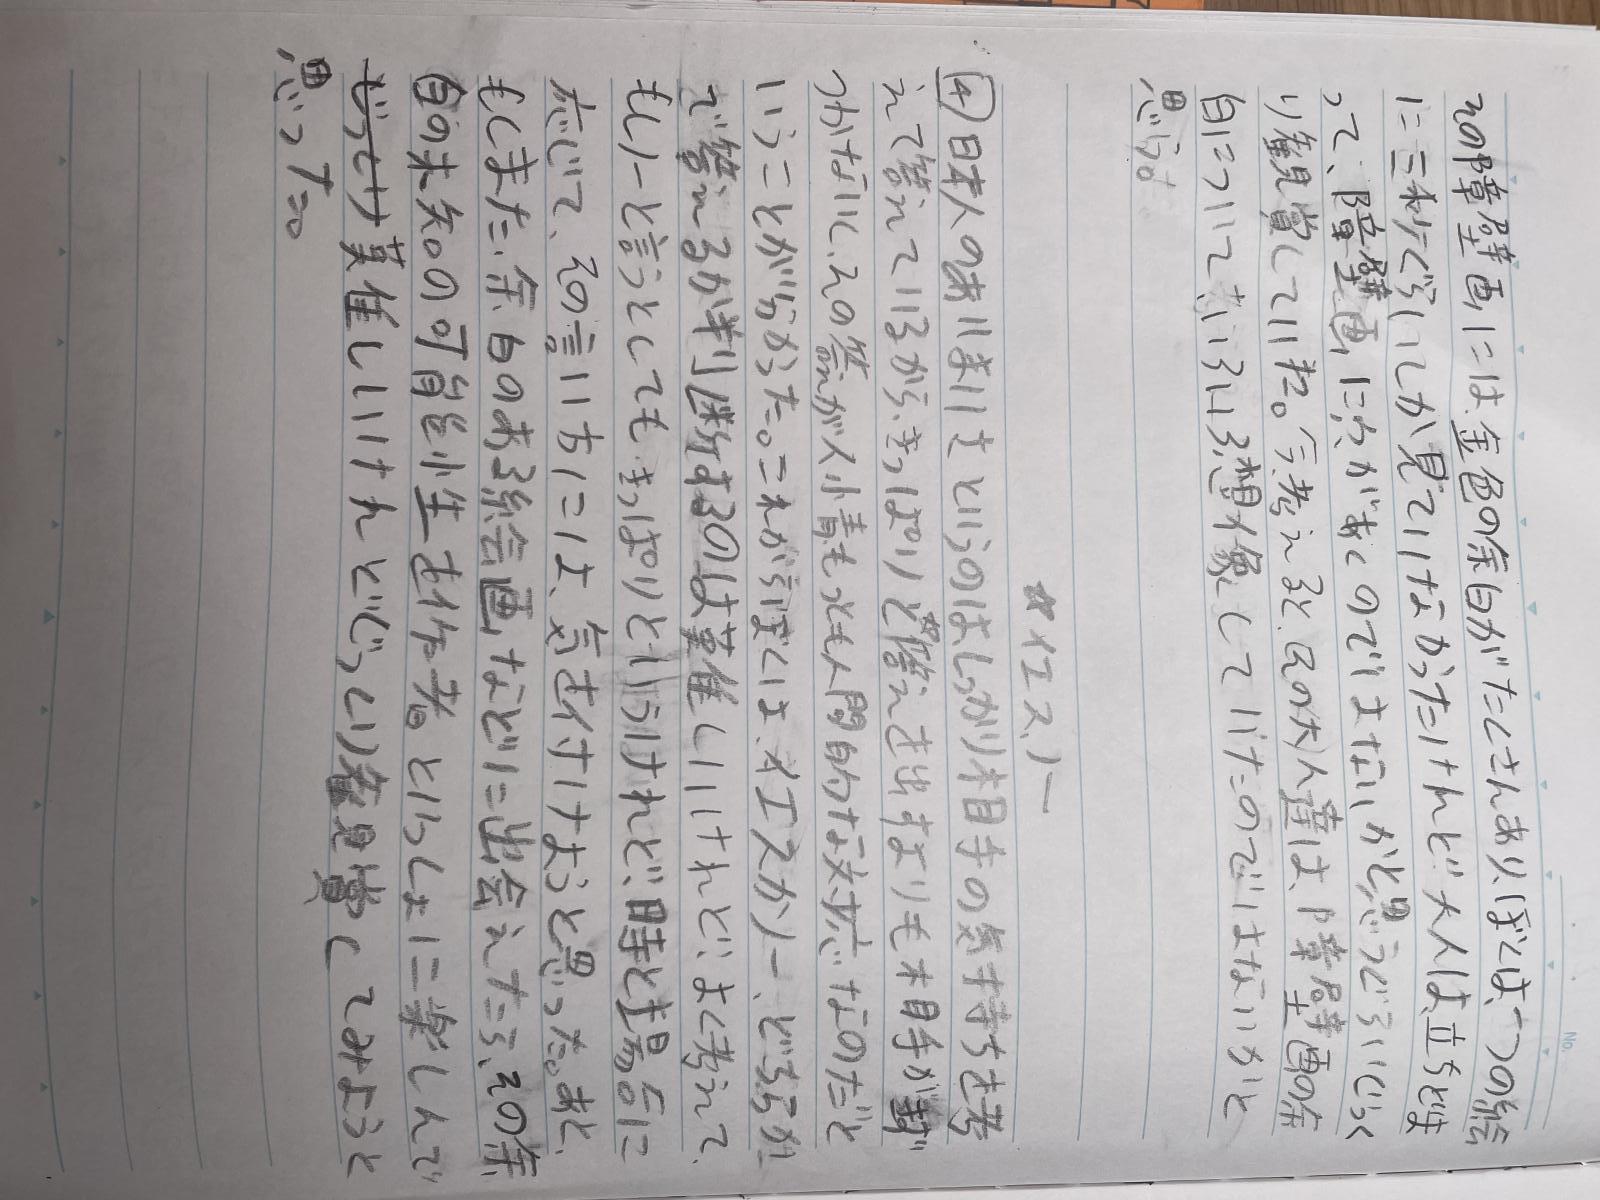 その障壁画には、金色の余白がたくさんあり、ぼくは、一つの絵
に三秒ぐらいしか見ていなかったけれど大人は立ちどま
って、障壁画に穴があくのではないかと思うぐらいじっく
り観賞していた。今考えると、その大人達は、障壁画の余
白についてさいろいろ想像していたのではないかと
思う。
イエス、ノー
④日本人のあいまいさというのはしっかり相手の気持ちを考
えて答えているから、きっぱりと答えを出すよりも相手が傷
つかないし、その答えが人情もっとも人間的な対応なのだと
いうことが分かった。これからぼくは、イエスかノー、どちらか
で答えるか判断するのは難しいけれどよく考えて、
もしノーと言うとしてもきっぱりというけれど、時と場合に
応じて、その言い方には、気を付けようと思った。あと、
もしまた、余白のある絵画などに出会えたら、その余
白の未知の可能性を作者といっしょに楽しんで
難しいけれどじっくり観賞してみようと
思った。